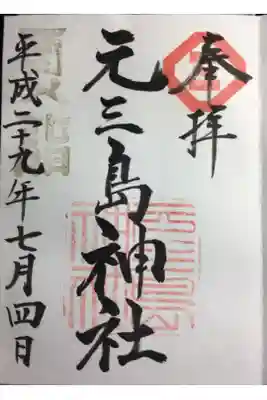 奉拝
元三島神社
平成二十九年七月四日